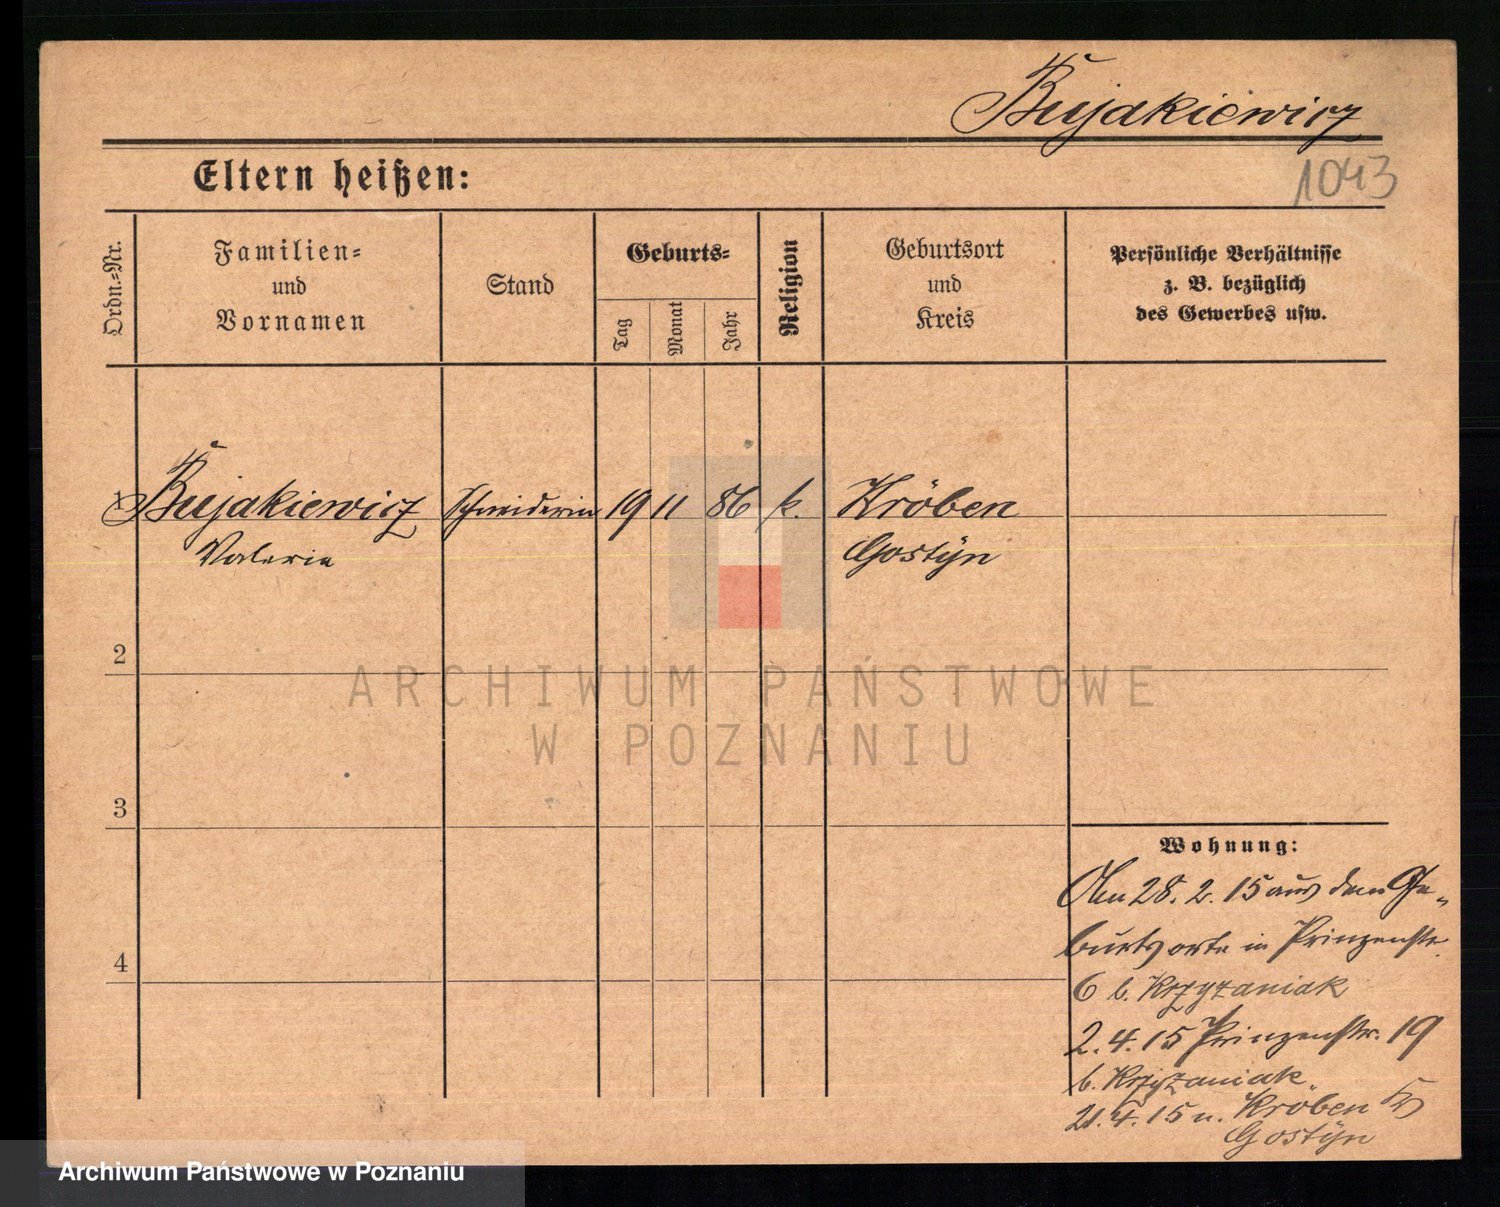 Bujakiewicz
1043
Eltern heißen:
Ordn.-Nr.
Familien-
und
Vornamen
Stand
Geburts-
Tag
Monat
Jahr
Religion
Geburtsort
und
Kreis
Persönliche Verhältnisse
z. B. bezüglich
des Gewerbes usw.
1 Bujakiewicz Schneiderin 19 11 86 k. Kröben
Valerie Gostÿn
2
3
4
Wohnung:
Am 28. 2. 15 aus dem Ge-
burtsorte in Prinzenstr.
6 b. Krzyzaniak
2. 4. 15 Prinzenstr. 19
b. Krzyzaniak.
21. 4. 15 n. Kröben
Gostÿn
ARCHIWUM PAŃSTWOWE
W POZNANIU
Archiwum Państwowe w Poznaniu